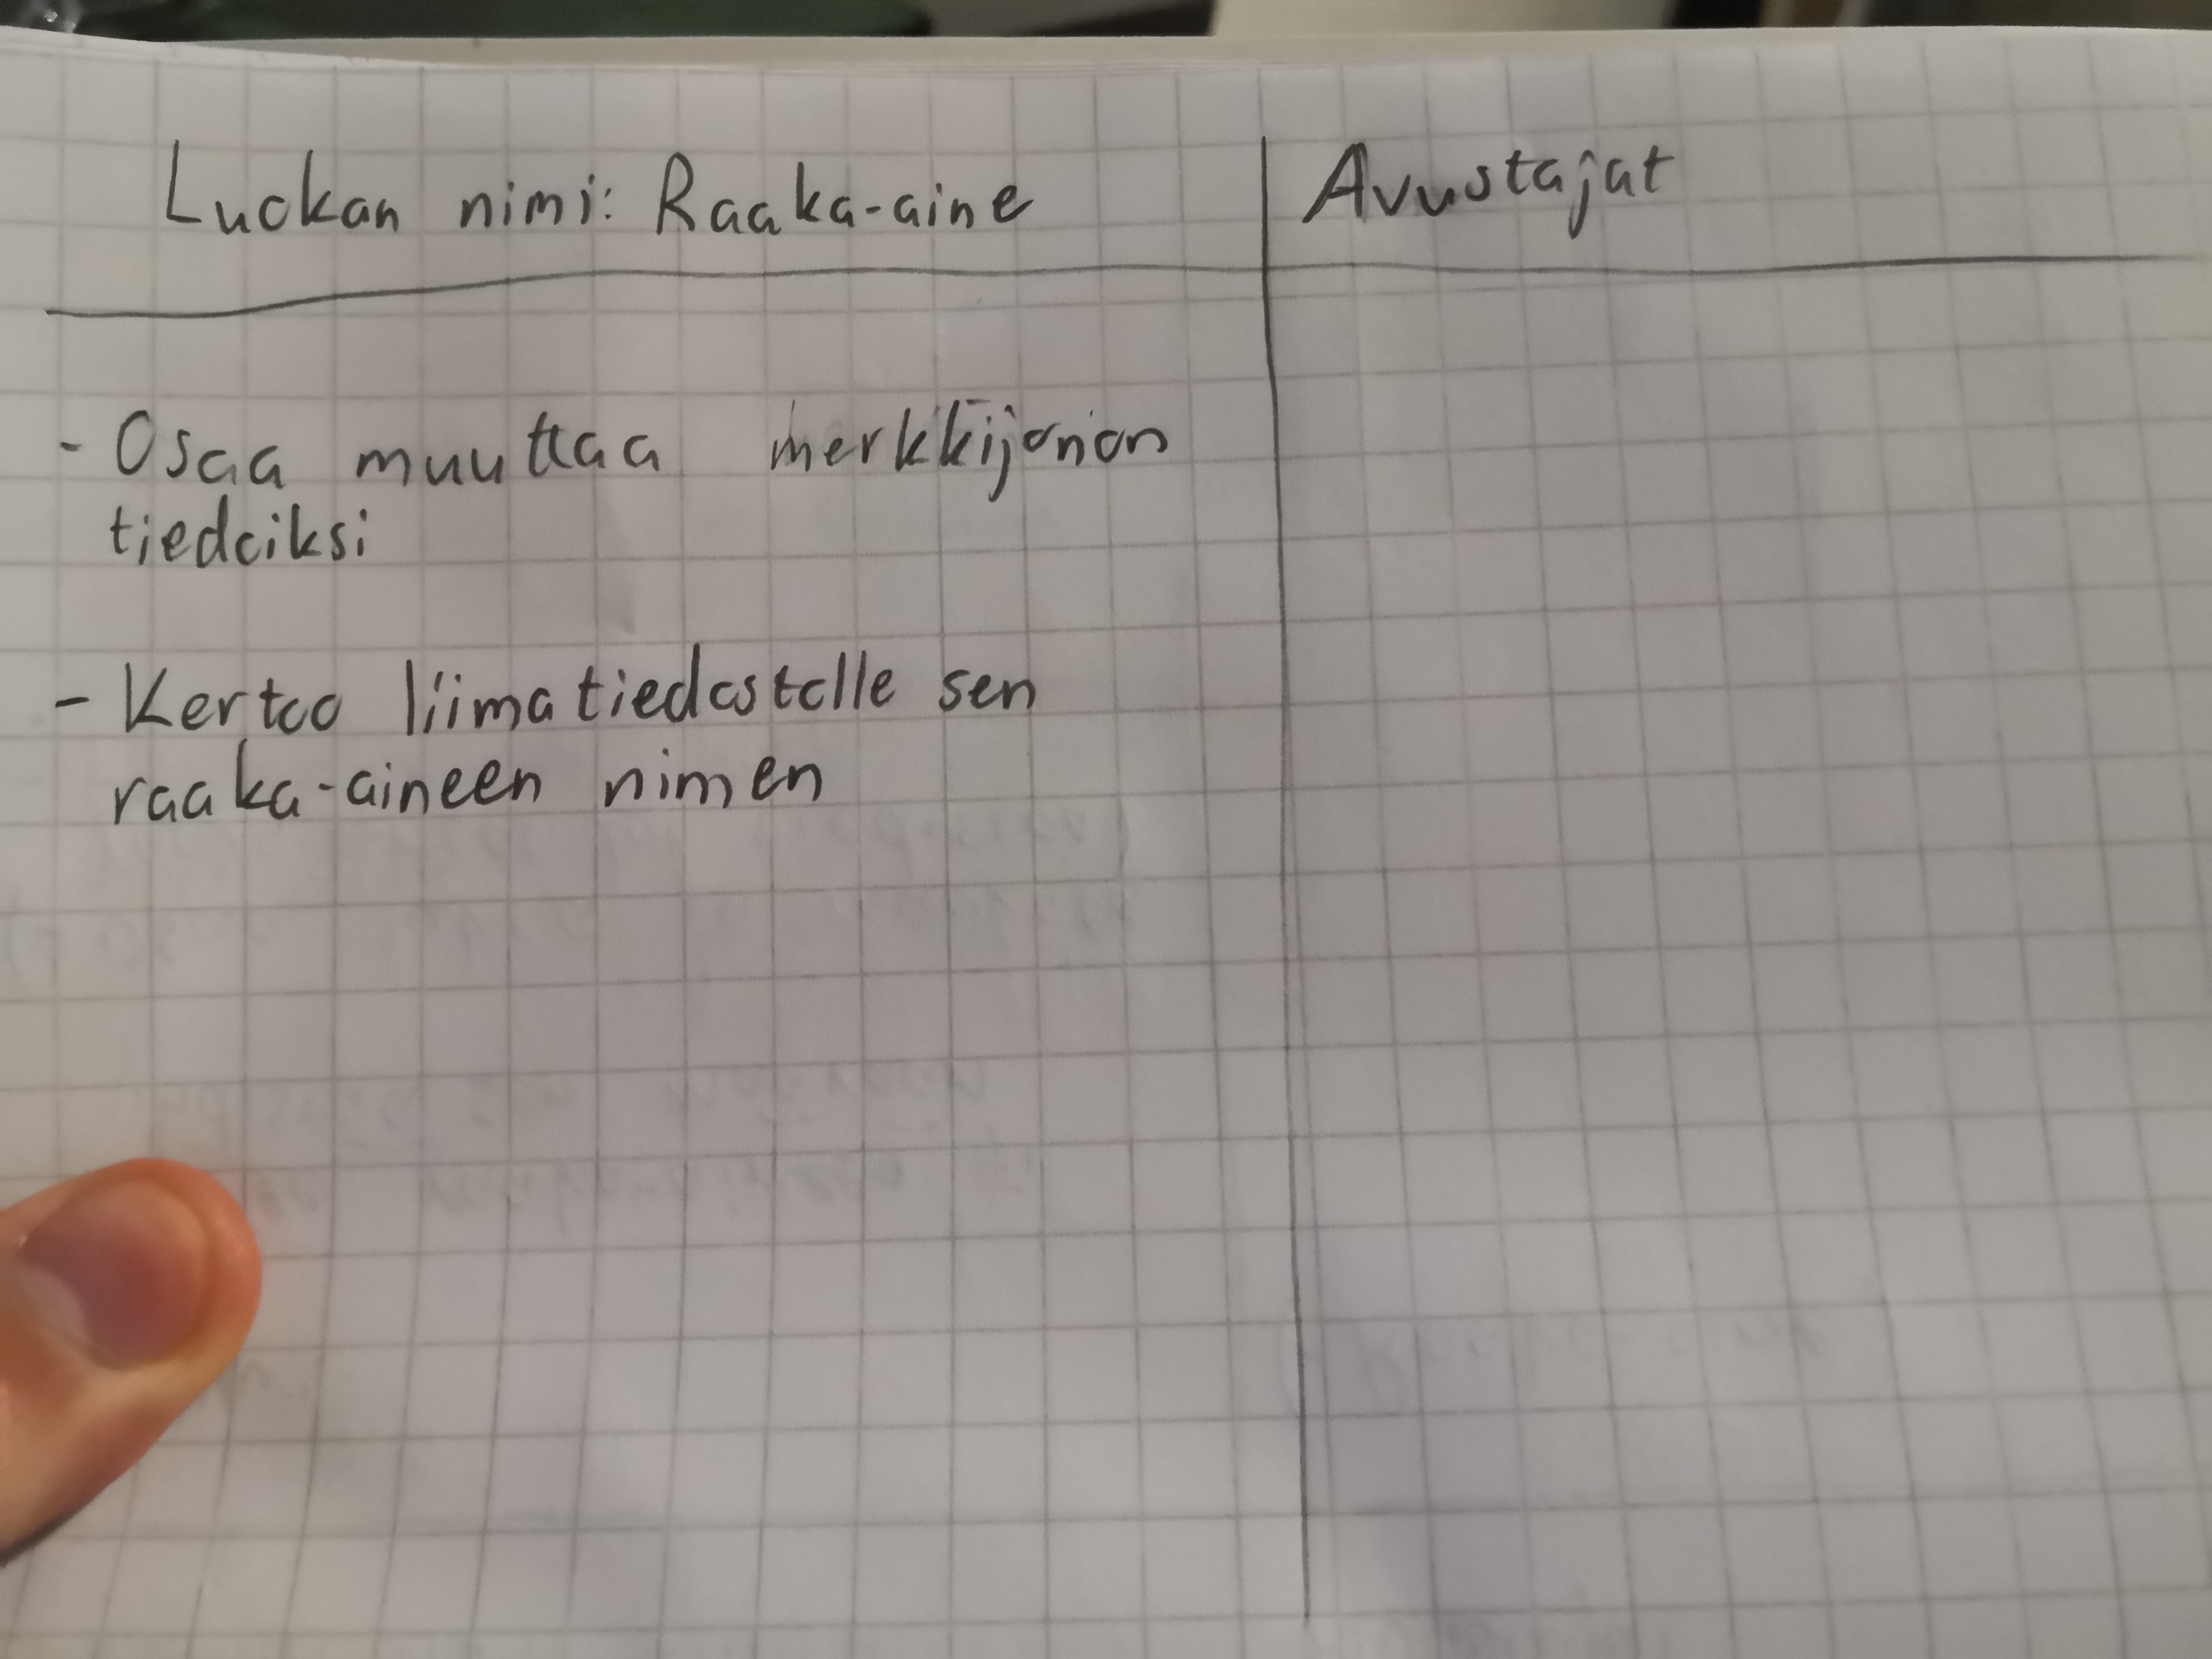 Luokan nimi: Raaka-aine
Avustajat
- Osaa muuttaa merkkijonon
tiedoiksi
- Kertoo liimatiedostolle sen
raaka-aineen nimen